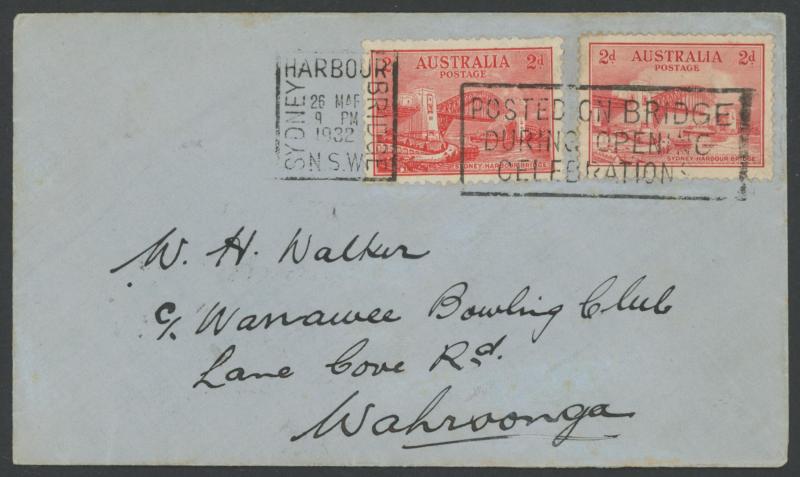 SYDNEY
HARBOUR
BRIDGE
26 MAR
9 PM
1932
N.S.W
2d AUSTRALIA 2d
POSTAGE
SYDNEY HARBOUR BRIDGE
2d AUSTRALIA 2d
POSTAGE
SYDNEY HARBOUR BRIDGE
POSTED ON BRIDGE
DURING OPENING
CELEBRATIONS
W. H. Walker
c/. Warrawee Bowling Club
Lane Cove Rd.
Wahroonga